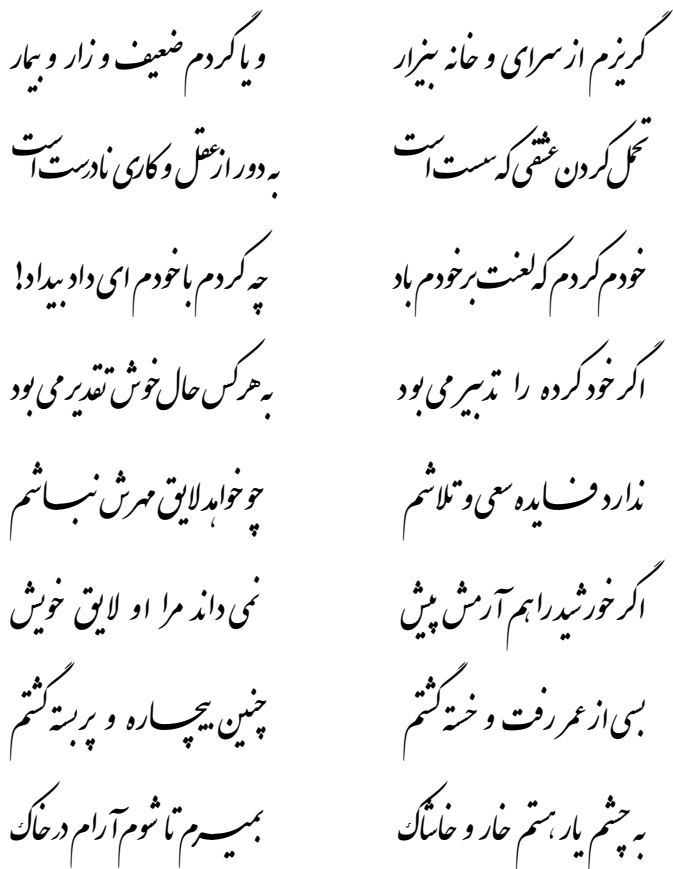 گریزم از سرای و خانه بیزار    و یا گردم ضعیف و زار و بیمار
تحمل کردن عشقی که سست است    به دور از عقل و کاری نادرست است
خودم کردم که لعنت بر خودم باد    چه کردم با خودم ای داد بیداد!
اگر خود کرده را تدبیر می بود    به هر کس حال خوش تقدیر می بود
ندارد فایده سعی و تلاشم    چو خواهد لایق مهرش نباشم
اگر خورشید را هم آرمش پیش    نمی داند مرا او لایق خویش
بسی از عمر رفت و خسته گشتم    چنین بیچاره و پربسته گشتم
به چشم یار هستم خار و خاشاک    بمیرم تا شوم آرام در خاک